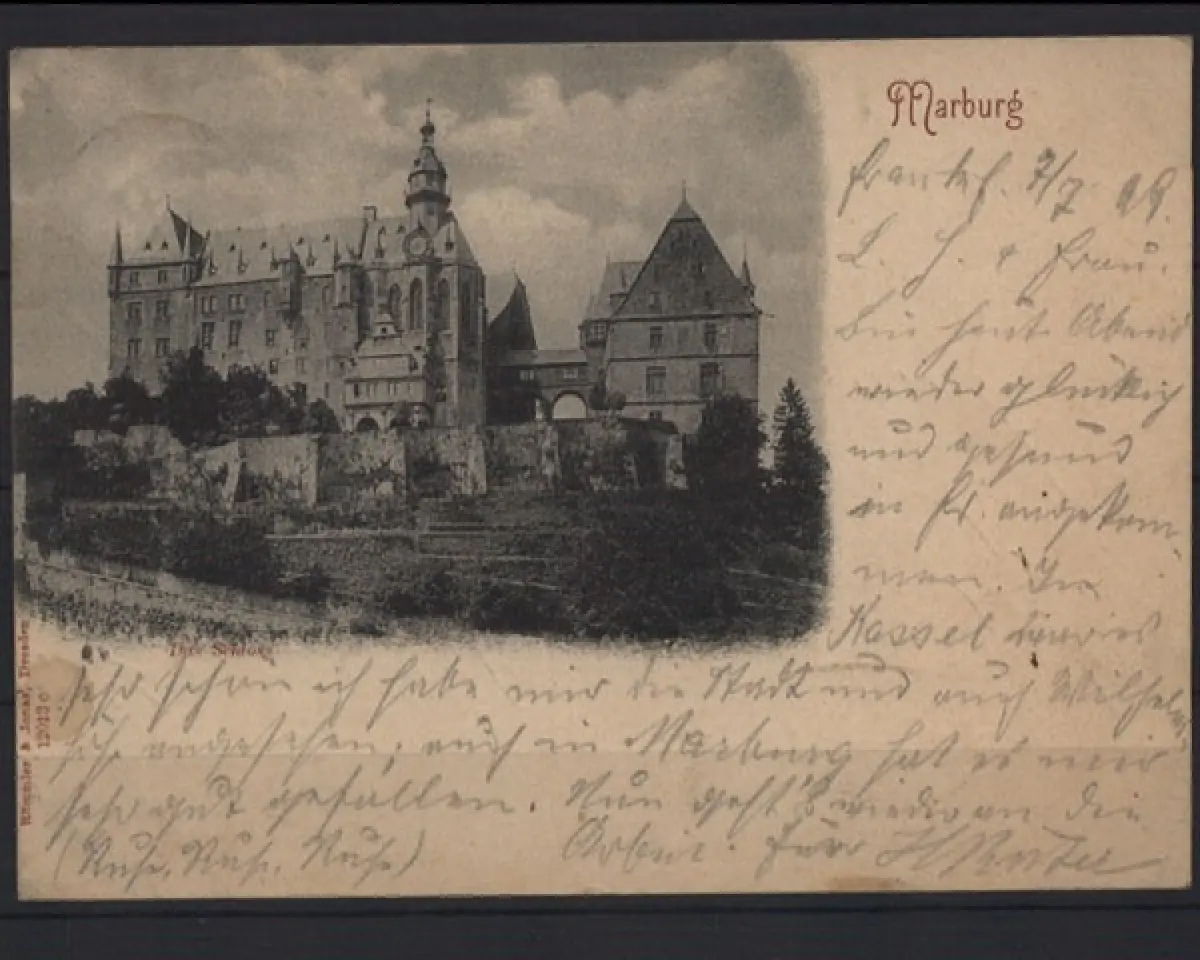 Marburg
Frankf. 7/7 98.
L. H. & Frau.
Bin heut Abend
wieder glücklich
und gesund
in Fr. angekom
men. In
Kassel war es
sehr schön ich habe mir die Stadt und auch Wilhelms
höhe angesehen, auch in Marburg hat es mir
sehr gut gefallen. Nun geht's wieder an die
(Ruhe, Ruhe, Ruhe) Arbeit.
Das Schloss
Römmler & Jonas, Dresden
12013 c